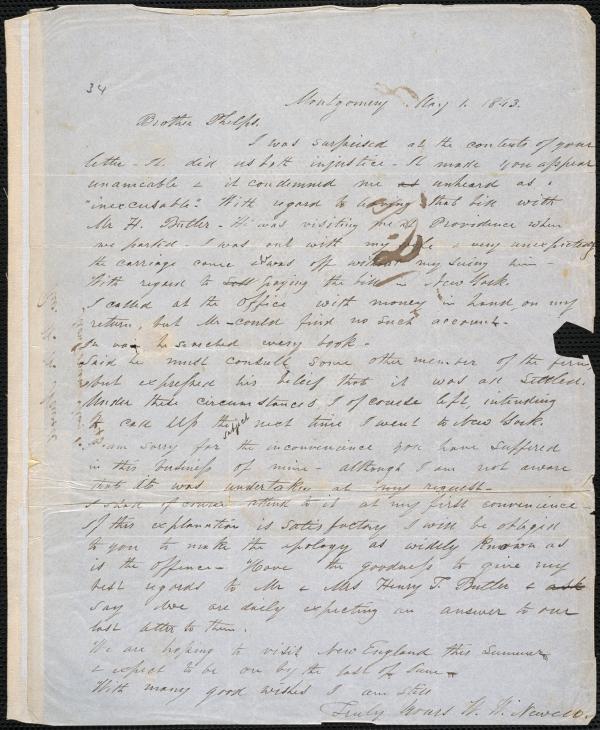 34
Montgomery May 1. 1843.
Brother Phelps.
I was surprised at the contents of your
letter - It did us both injustice - It made you appear
unamicable & it condemned me as unheard as
"inexcusable". With regard to leaving that bill with
Mr H. Butler - He was visiting me at Providence when
we parted - I was out with my & very unexpectedly
the carriage came & was off without my seeing him -
With regard to paying the bill in New York.
I called at the Office with money in hand, on my
return, but Mr could find no such account -
he searched every book -
Said he must consult some other member of the firm
but expressed his belief that it was all settled.
Under these circumstances I of course left, intending
to call up the subject next time I went to New York.
I am sorry for the inconvenience you have suffered
in this business of mine - although I am not aware
that it was undertaken at my request -
I shall of course attend to it at my first convenience -
If this explanation is satisfactory I will be obliged
to you to make the apology as widely known as
is the offence - Have the goodness to give my
best regards to Mr & Mrs Henry T. Butler & ask
say we are daily expecting an answer to our
last letter to them.
We are hoping to visit New England this summer
& expect to be on by the last of June -
With many good wishes I am still
Truly Yours W. W. Newell.